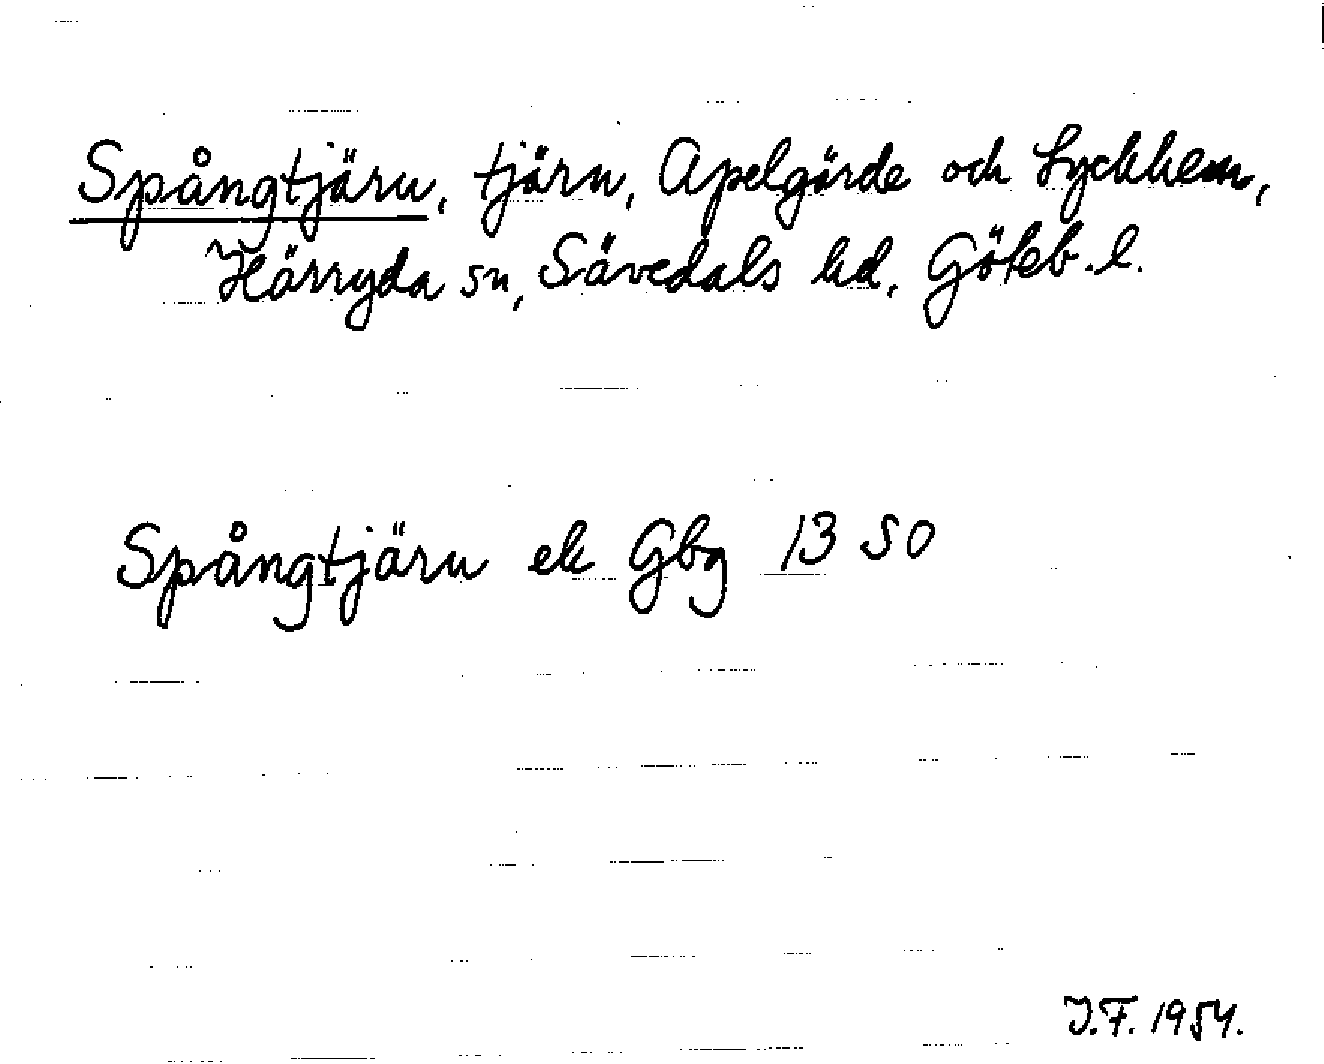 Spångtjärn, tjärn, Apelgärde och Lyckhem,
Härryda sn, Sävedals hd, Göteb. l.
Spångtjärn ek Gbg 13 SO
J.F. 1954.